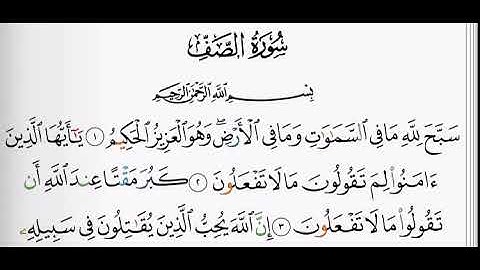 سُورَةُ الصَّفِّ
بِسْمِ اللَّهِ الرَّحْمَٰنِ الرَّحِيمِ
سَبَّحَ لِلَّهِ مَا فِي السَّمَٰوَٰتِ وَمَا فِي الْأَرْضِ ۖ وَهُوَ الْعَزِيزُ الْحَكِيمُ ١ يَٰٓأَيُّهَا الَّذِينَ
ءَامَنُوا۟ لِمَ تَقُولُونَ مَا لَا تَفْعَلُونَ ٢ كَبُرَ مَقْتًا عِندَ اللَّهِ أَن
تَقُولُوا۟ مَا لَا تَفْعَلُونَ ٣ إِنَّ اللَّهَ يُحِبُّ الَّذِينَ يُقَٰتِلُونَ فِي سَبِيلِهِۦ